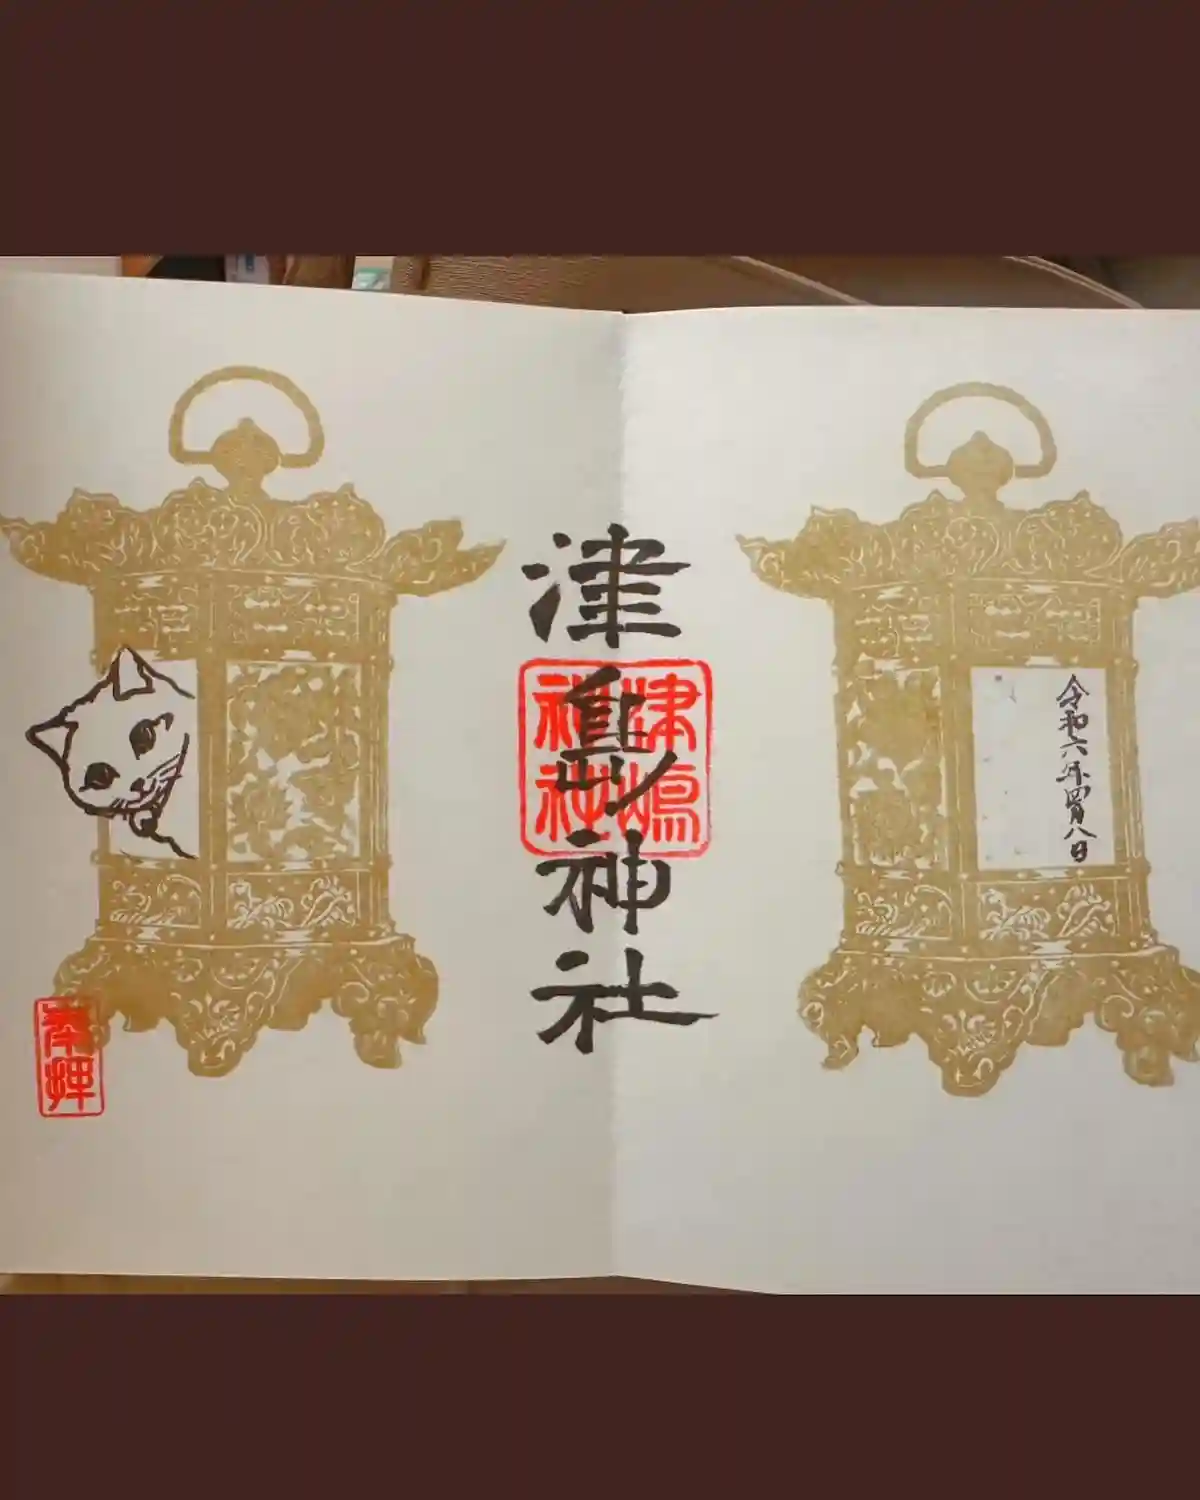 令和六年四月八日
津島神社
津嶋
神社
奉拝